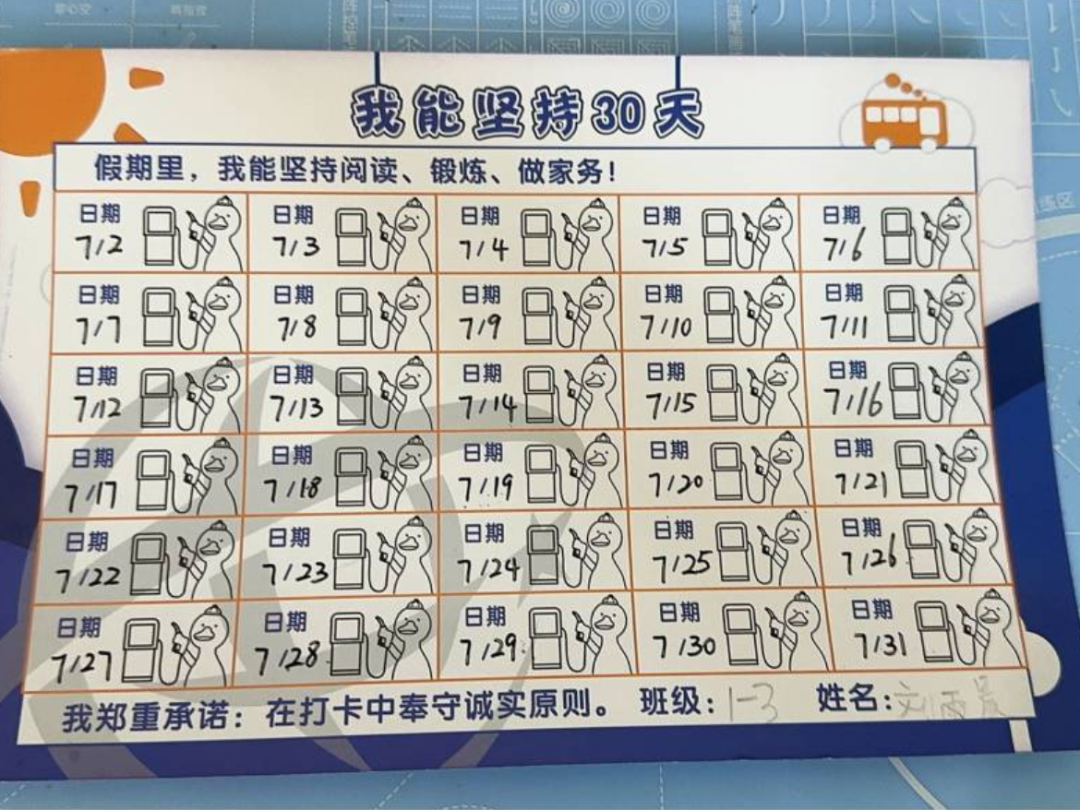 我能坚持30天
假期里，我能坚持阅读、锻炼、做家务！
日期 日期 日期 日期 日期
7/2 7/3 7/4 7/5 7/6
日期 日期 日期 日期 日期
7/7 7/8 7/9 7/10 7/11
日期 日期 日期 日期 日期
7/12 7/13 7/14 7/15 7/16
日期 日期 日期 日期 日期
7/17 7/18 7/19 7/20 7/21
日期 日期 日期 日期 日期
7/22 7/23 7/24 7/25 7/26
日期 日期 日期 日期 日期
7/27 7/28 7/29 7/30 7/31
我郑重承诺：在打卡中奉守诚实原则。 班级：1-3 姓名：刘雨晨